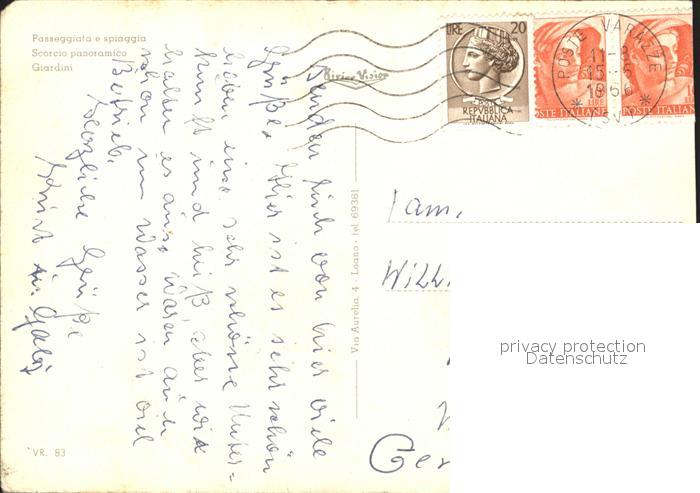 Passeggiata e spiaggia
Scorcio panoramico
Giardini
Riviera Vision
LIRE 20
REPUBBLICA
ITALIANA
POSTE ITALIANE
POSTE ITALIANE
POSTE VARAZZE
11-
15
1966
Senden Euch von hier viele
Grüße. Hier ist es sehr schön
haben eine sehr schöne Unter=
kunft und heiß, aber wir
halten es aus, waren auch
schon im Wasser ist viel
Betrieb.
Herzliche Grüße
Via Aurelia, 4 - Loano - tel. 69381
Fam.
Willi
Ger
VR. 83
privacy protection
Datenschutz